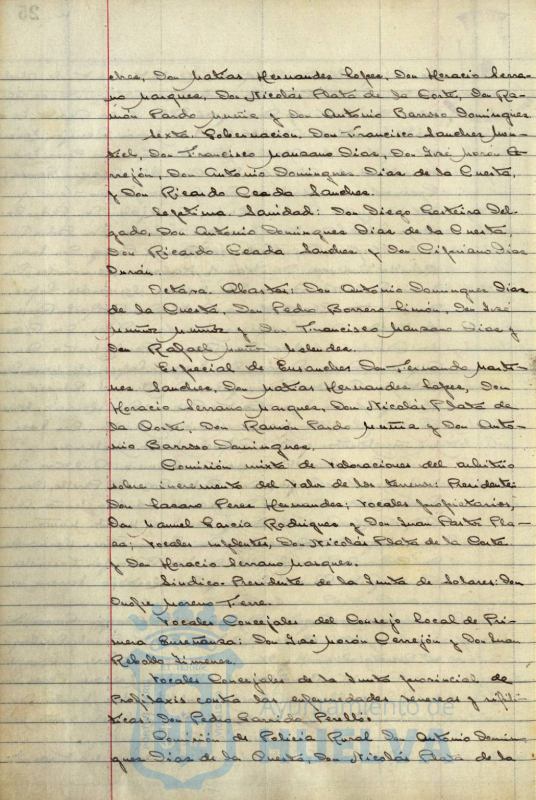 ches, Don Matías Hernandez Lopez, Don Horacio Serra-
no Marquez, Don Nicolás Plata de la Corte, Don Ra-
món Pardo Muñiz y Don Antonio Barroso Dominguez
Sexta. Gobernacion, Don Francisco Sanchez Mon-
tiel, Don Francisco Manzano Dias, Don José Morón Ce-
rrejón, Don Antonio Dominguez Dias de la Cuesta,
y Don Ricardo Ceada Sanchez.
Septima. Sanidad: Don Diego Garteira Del-
gado, Don Antonio Dominguez Dias de la Cuesta,
Don Ricardo Ceada Sanchez y Don Cipriano Dias
Durán.
Octava. Abastos: Don Antonio Dominguez Dias
de la Cuesta, Don Pedro Borrero Limón, Don José
Muñoz Muñoz y Don Francisco Manzano Dias y
Don Rafael Muñiz
Especial de Ensanche: Don Fernando Marti-
nez Sanchez, Don Matías Hernandez Lopez, Don
Horacio Serrano Marquez, Don Nicolás Plata de
la Corte, Don Ramón Pardo Muñiz y Don Anto-
nio Barroso Dominguez.
Comisión mixta de Valoraciones del arbitrio
sobre incremento del valor de los terrenos: Presidente:
Don Lazaro Perez Hernandez; vocales propietarios,
Don Manuel Garcia Rodriguez y Don Juan
vocales suplentes, Don Nicolás Plata de la Corte
y Don Horacio Serrano Marquez.
Sindico-Presidente de la Junta de Solares: Don
Onofre Moreno Terre.
Vocales Concejales del Consejo Local de Pri-
mera Enseñanza: Don José Morón Cerrejón y Don Juan
Rebollo Jimenez.
Vocales Concejales de la Junta provincial de
Profilaxis contra las enfermedades venereas y sifilí-
ticas: Don Pedro Garrido Perelló.
Comisión de Policia Rural Don Antonio Domin-
guez Dias de la Cuesta, Don Nicolás Plata de la
Ayuntamiento de
HUELVA